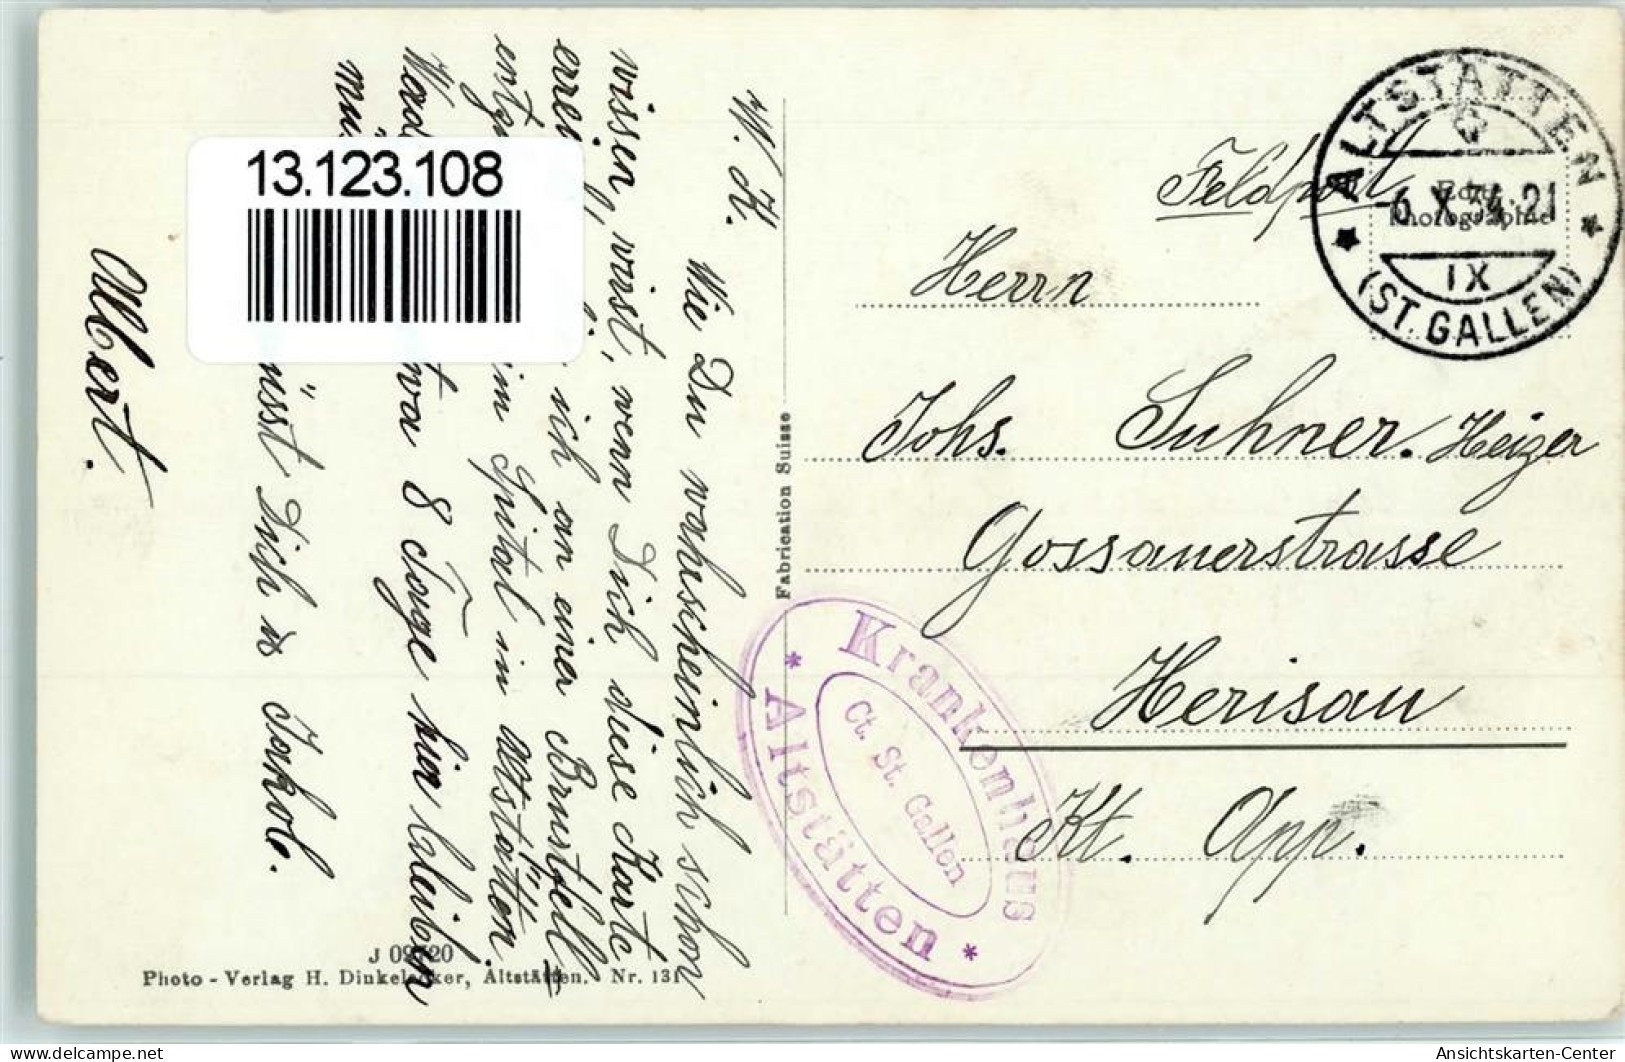 W. K.
Wie Du wahrscheinlich schon
wissen wirst, wenn Dich diese Karte
errei ich an einer Brustfell-
entzü im Spital in altstätten.
8 Tage hier bleiben
müsst Dich u Jakob.
Albert.
13.123.108
J 09720
Photo - Verlag H. Dinkelacker, Altstätten. Nr. 131
Fabrication Suisse
Feldpost
ALTSTÄTTEN
6. X. 21
IX
(ST. GALLEN)
Echte
Photographie
Herrn
Johs. Suhner. Heizer
Gossauerstrasse
Herisau
Kt. App.
Krankenhaus
Ct. St. Gallen
* Altstätten *
Ansichtskarten-Center
delcampe.net